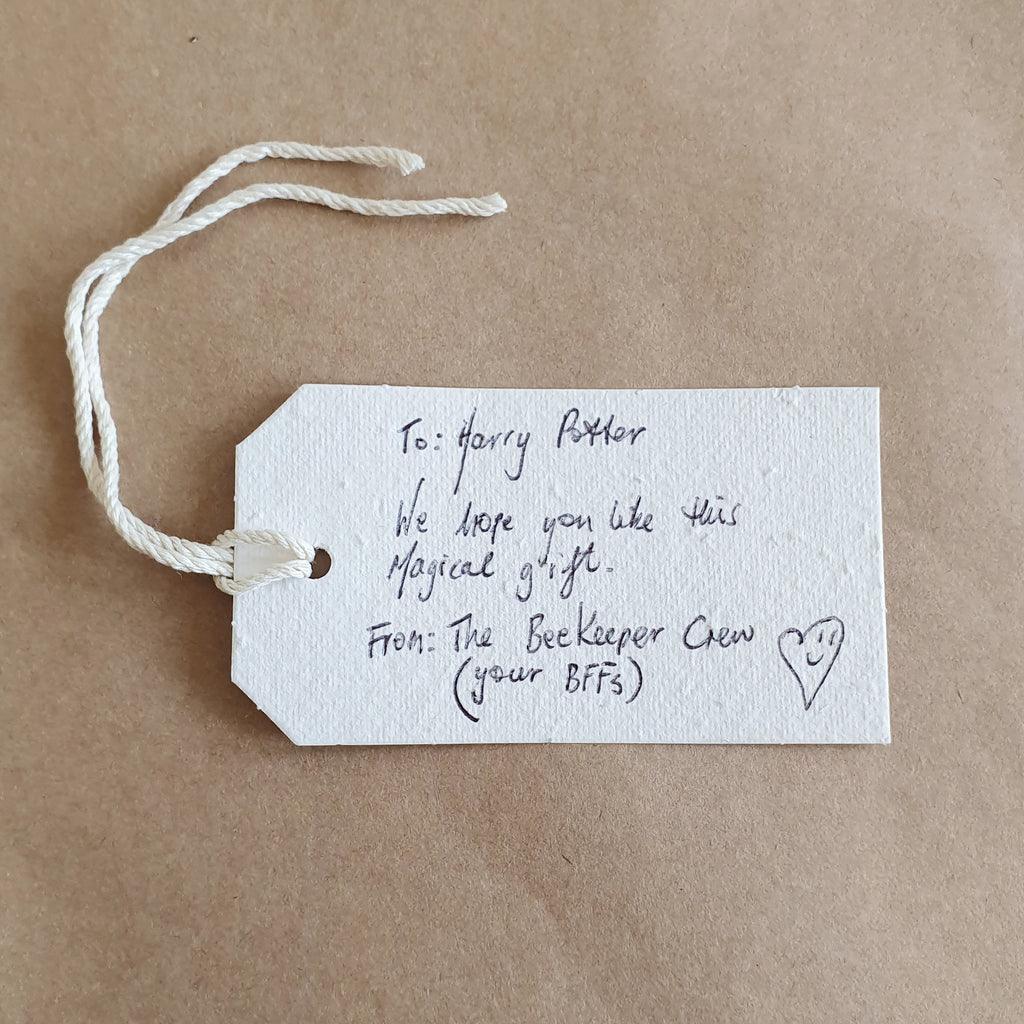 To: Harry Potter
We hope you like this
Magical gift.
From: The BeeKeeper Crew
(your BFFs)